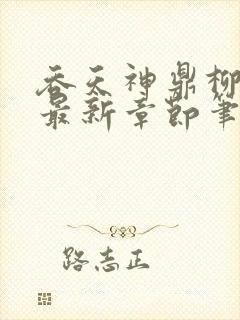 吞天神鼎柳
最新章节笔
路志正